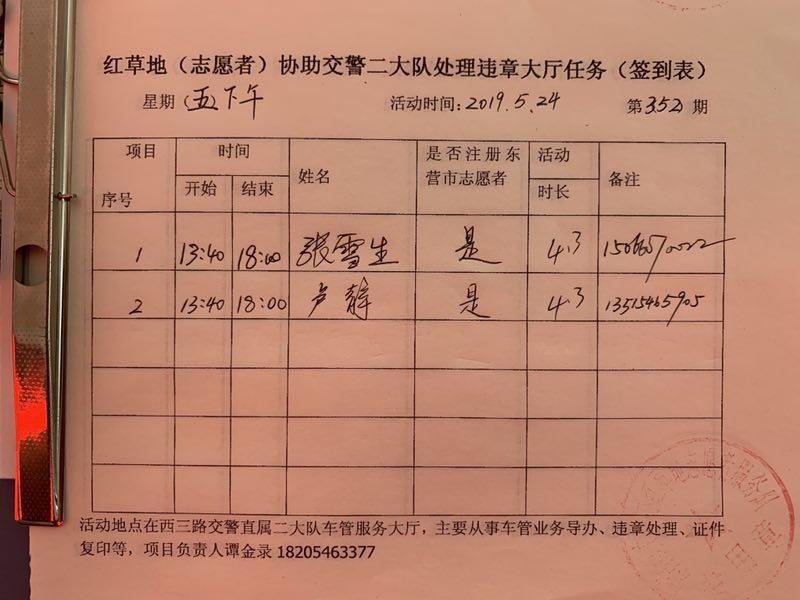 红草地（志愿者）协助交警二大队处理违章大厅任务（签到表）
星期（五下午 活动时间：2019.5.24 第352期
项目 序号 时间 开始 结束 姓名 是否注册东营市志愿者 活动时长 备注
1 13:40 18:00 张雪生 是 4.3
2 13:40 18:00 卢静 是 4.3 13515465905
活动地点在西三路交警直属二大队车管服务大厅，主要从事车管业务导办、违章处理、证件
复印等，项目负责人谭金录 18205463377